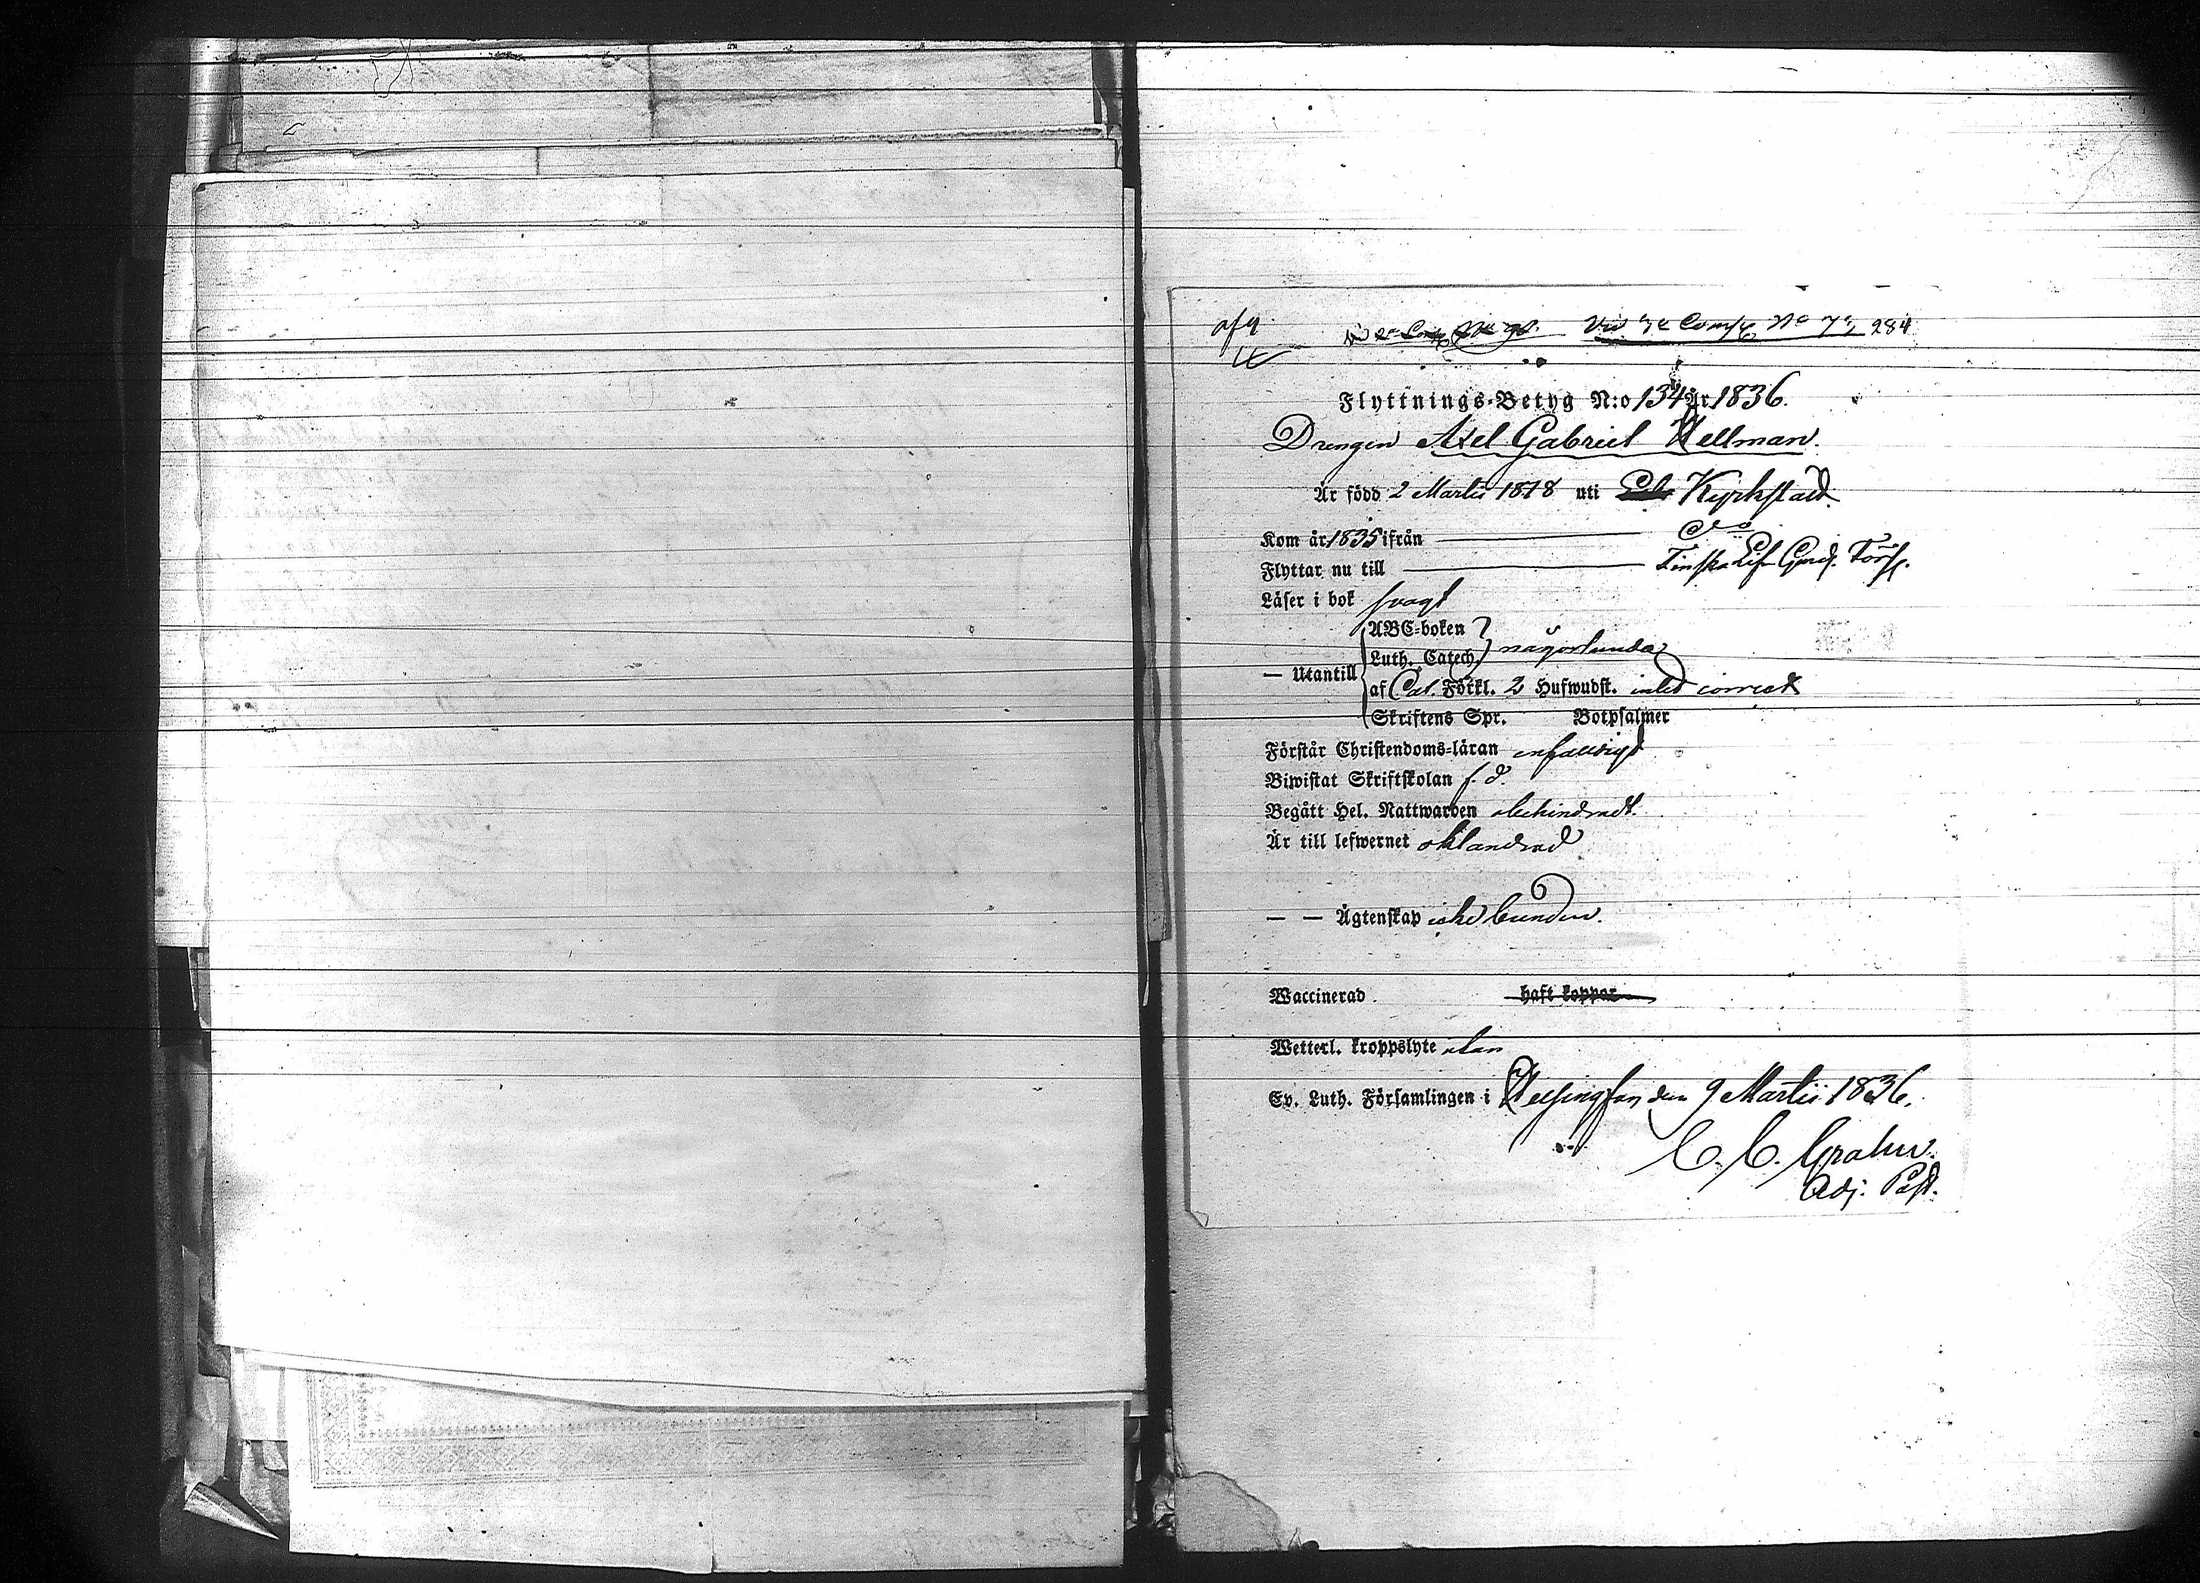 afg.
Vid 4e Comp No 72 284
Flyttnings-Betyg N:o 134 År 1836.
Drengen Axel Gabriel Hellman.
Är född 2 Martii 1818 uti Kyrkslätt
Kom år 1835 ifrån — do
Flyttar nu till — Finska Lif Gard. Förs.
Läser i bok svagt
ABC-boken
Luth. Catech. någorlunda
— Utantill
af Förkl. 2 Hufwudst. correct
Skriftens Spr. Botpsalmer
Förstår Christendoms-läran enfaldigt
Biwistat Skriftskolan f. d.
Begått Hel. Nattwarden obehindradt.
Är till lefwernet oklandrad
— — Ägtenskap icke bunden.
Waccinerad haft koppor
Wetterl. kroppslyte utan
Ev. Luth. Församlingen i Helsingfors den 9 Martii 1836.
C. C. Grahn.
Adj. Past.